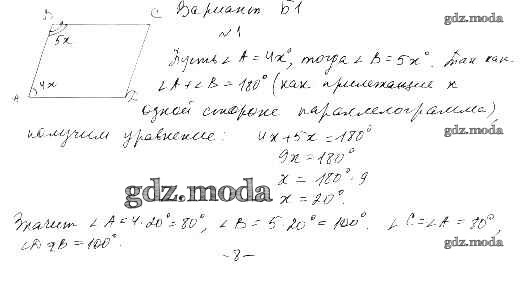 Вариант Б1
№1
B C
5x
4x
A D
Пусть ∠A = 4x°, тогда ∠B = 5x°. Так как
∠A + ∠B = 180° (как прилежащие к
одной стороне параллелограмма)
получим уравнение: 4x + 5x = 180°
9x = 180°
x = 180° : 9
x = 20°.
Значит ∠A = 4·20° = 80°, ∠B = 5·20° = 100°. ∠C = ∠A = 80°,
= 100°.
gdz.moda
gdz.moda
gdz.moda
gdz.moda
gdz.moda